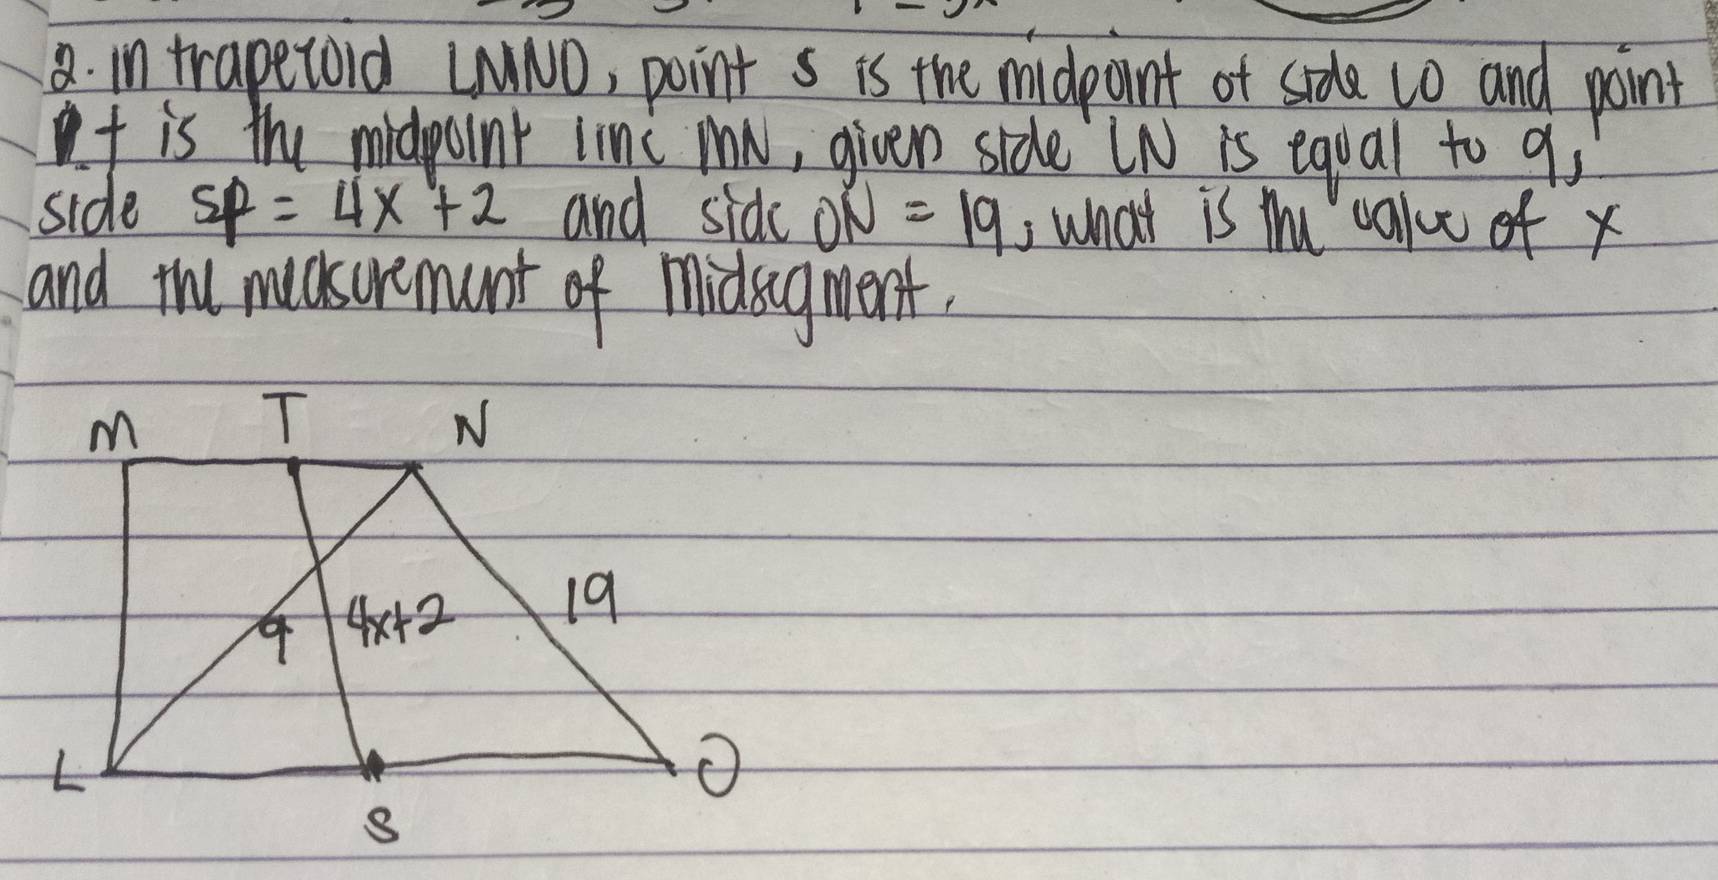 2. in trapezoid LMNO, point s is the midpoint of side LO and point
t is the midpoint line MN, given side LN is equal to 9,
side SP = 4x + 2 and side ON = 19, what is the value of x
and the measurement of midsegment.
M T N
19
9 4x+2
L S O